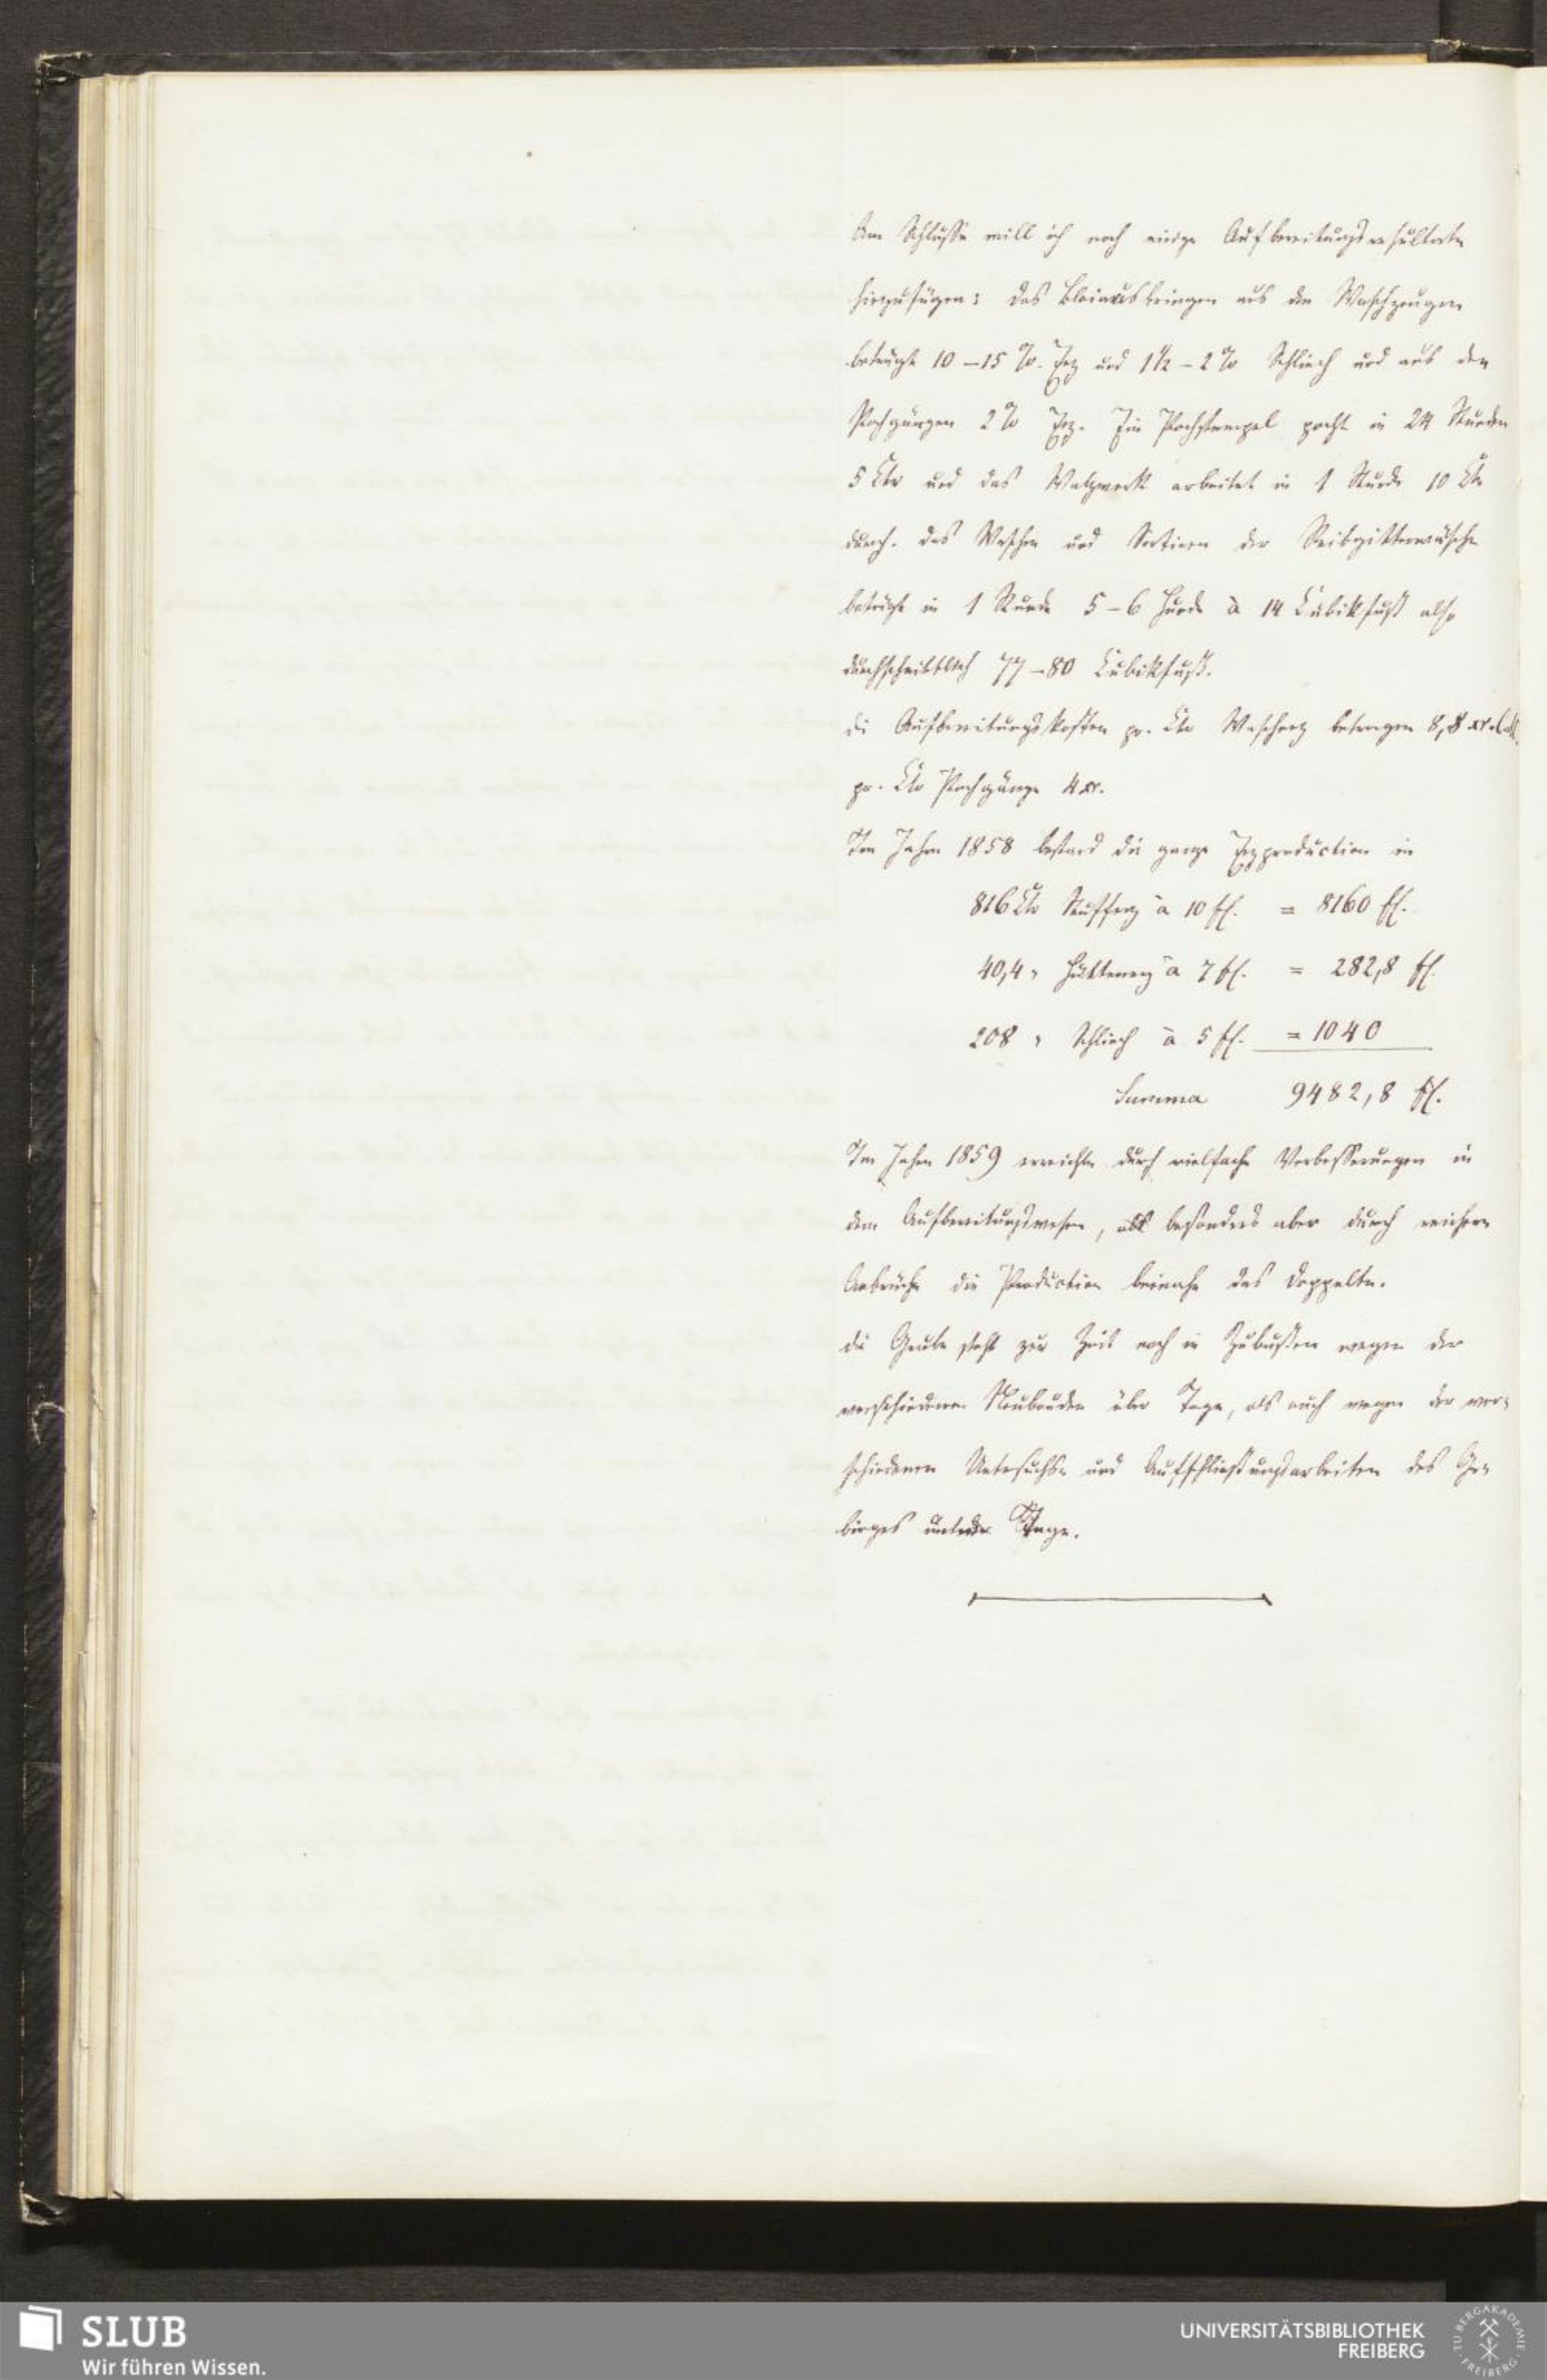 Am Schlusse will ich noch einige Aufbereitungsresultate
hinzufügen: das Bleiausbringen aus den Waschzeugen
beträgt 10–15 %. Erz und 1 1/2 – 2 % Schliech und aus den
Pochgängen 2 % Erz. Ein Pochstempel pocht in 24 Stunden
5 Ctr und das Walzwerk arbeitet in 1 Stunde 10 Ctr
durch. Das Waschen und Sortiren der Reibgitterwäsche
beträgt in 1 Stunde 5–6 Hunde à 14 Cubikfuß also
durchschnittlich 77–80 Cubikfuß.
die Aufbereitungskosten pr. Ctr Wascherz betragen 8,8 xr.
pr. Ctr Pochgänge 4 xr.
Im Jahre 1858 bestand die ganze Erzproduction in
816 Ctr Stufferz à 10 fl. = 8160 fl.
40,4 " Hüttenerz à 7 fl. = 282,8 fl.
208 " Schliech à 5 fl. = 1040
Summa 9482,8 fl.
Im Jahre 1859 erreichte durch vielfache Verbesserungen in
dem Aufbereitungswesen, besonders aber durch reichere
Anbrüche die Production beinahe das Doppelte.
die Grube steht zur Zeit noch in Zubußen wegen der
verschiedenen Neubauden über Tage, als auch wegen der ver=
schiedenen Untersuchs= und Aufschließungsarbeiten des Ge=
birges unter Tage.
SLUB
Wir führen Wissen.
UNIVERSITÄTSBIBLIOTHEK
FREIBERG
TU BERGAKADEMIE
FREIBERG